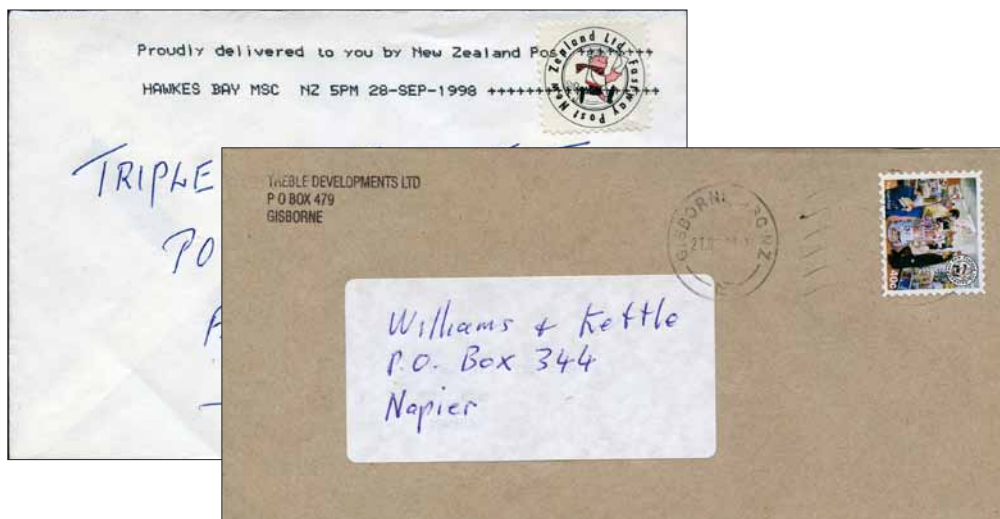 Proudly delivered to you by New Zealand Post ++++++++
HAWKES BAY MSC NZ 5PM 28-SEP-1998 ++++++++++++++++++
Fastway Post New Zealand Ltd
TRIPLE
PO
TREBLE DEVELOPMENTS LTD
P O BOX 479
GISBORNE
GISBORNE NZ
40c
Williams + Kettle
P.O. Box 344
Napier